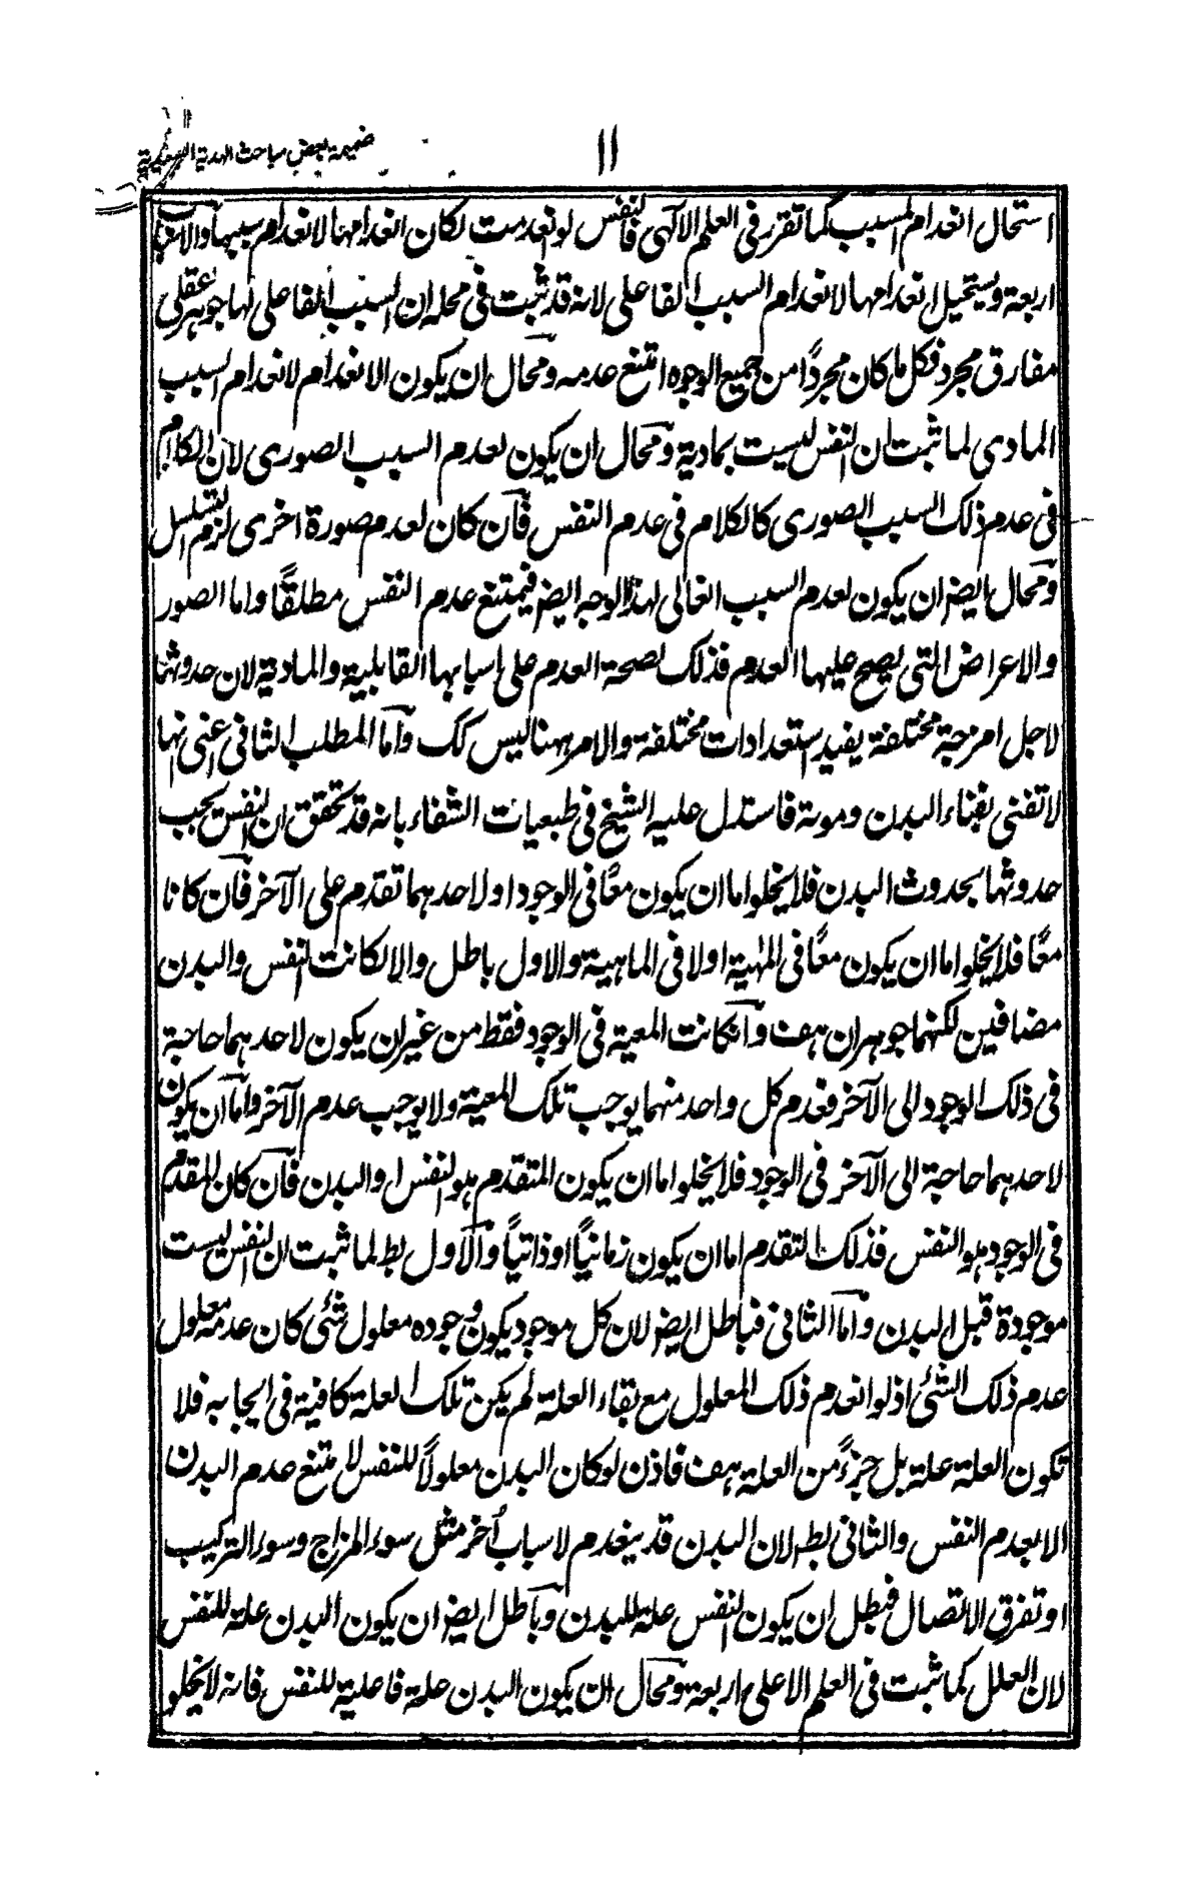 ١١
ضميمة بعض مباحث الهدية السعيدية
استحال انعدام المسبب كما تقرر فى العلم الآلهى فالنفس لو انعدمت لكان انعدامها لانعدام سببها والاسباب
اربعة ويستحيل انعدامها لانعدام السبب الفاعلى لانه قد ثبت فى محله ان السبب الفاعلى لها جوهر عقلى
مفارق مجرد فكل ما كان مجردًا من جميع الوجوه امتنع عدمه ومحال ان يكون الانعدام لانعدام السبب
المادى لما ثبت ان النفس ليست بمادية ومحال ان يكون لعدم السبب الصورى لان الكلام
فى عدم ذلك السبب الصورى كالكلام فى عدم النفس فان كان لعدم صورة اخرى لزم التسلسل
ومحال ايضا ان يكون لعدم السبب الغائى لهذا الوجه ايضا فيمتنع عدم النفس مطلقًا واما الصور
والاعراض التى يصح عليها العدم فذلك لصحة العدم على اسبابها القابلية والمادية لان حدوثها
لاجل امزجة مختلفة يفيد استعدادات مختلفة والامر ههنا ليس كك واما المطلب الثانى اعنى انها
لا تفنى بفناء البدن وموته فاستدل عليه الشيخ فى طبعيات الشفاء بانه قد تحقق ان النفس يجب
حدوثها بحدوث البدن فلا يخلو اما ان يكون معًا فى الوجود او لاحدهما تقدم على الآخر فان كانا
معًا فلا يخلو اما ان يكون معًا فى المهية او لا فى الماهية والاول باطل والا لكانت النفس والبدن
مضافين لكنهما جوهران هف وان كانت المعية فى الوجود فقط من غير ان يكون لاحدهما حاجة
فى ذلك الوجود الى الآخر فعدم كل واحد منهما يوجب تلك المعية ولا يوجب عدم الآخر واما ان يكون
لاحدهما حاجة الى الآخر فى الوجود فلا يخلو اما ان يكون المتقدم هو النفس او البدن فان كان المقدم
فى الوجود هو النفس فذلك التقدم اما ان يكون زمانيًا او ذاتيًا والاول بط لما ثبت ان النفس ليست
موجودة قبل البدن واما الثانى فباطل ايضا لان كل موجود يكون وجوده معلول شئى كان عدمه معلول
عدم ذلك الشئى اذ لو انعدم ذلك المعلول مع بقاء العلة لم يكن تلك العلة كافية فى ايجابه فلا
تكون العلة علة بل جزءً من العلة هف فاذن لو كان البدن معلولًا للنفس لامتنع عدم البدن
الا بعدم النفس والثانى بط لان البدن قد ينعدم لاسباب أخر مثل سوء المزاج وسوء التركيب
او تفرق الاتصال فبطل ان يكون النفس علة للبدن وباطل ايضا ان يكون البدن علة للنفس
لان العلل كما ثبت فى العلم الاعلى اربعة ومحال ان يكون البدن علة فاعلية للنفس فانه لا يخلو